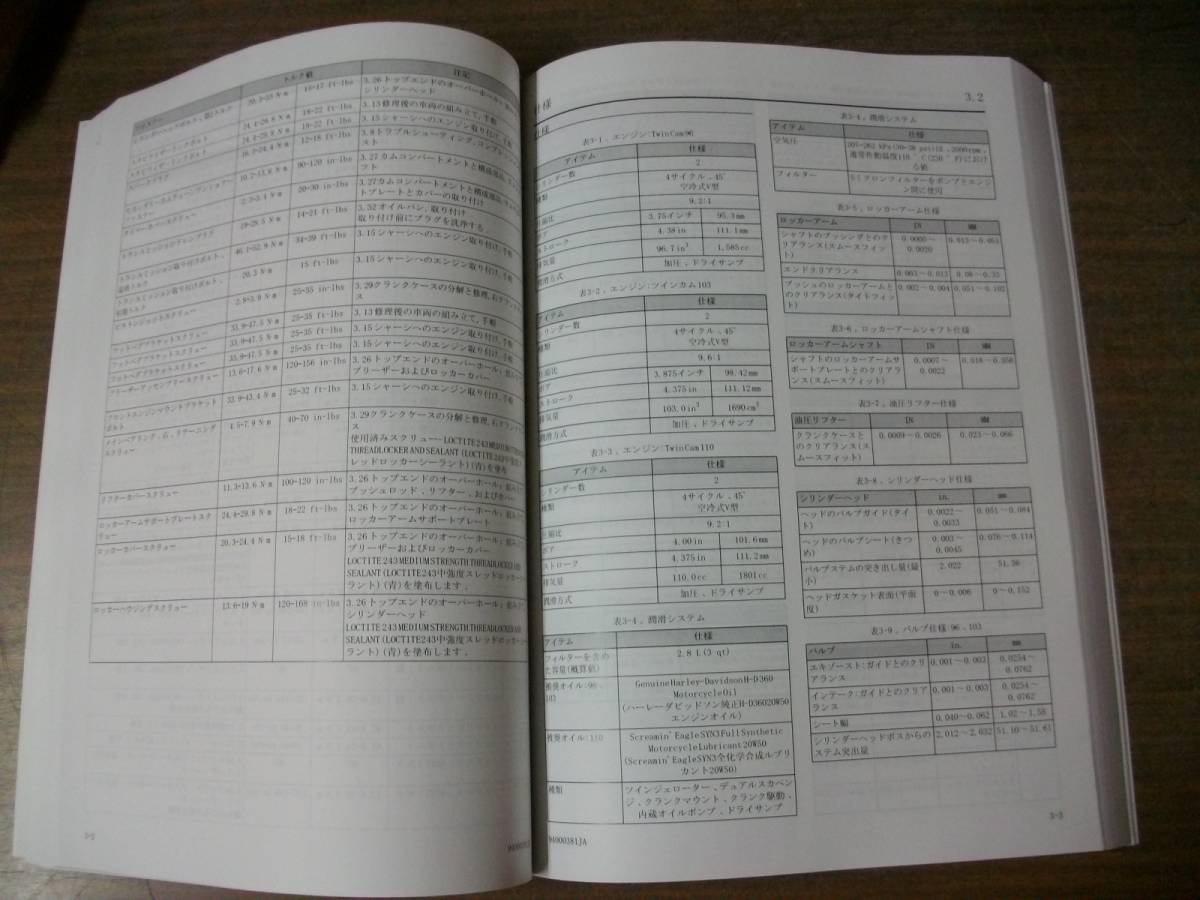 トルク値
注記
20.3-23 N·m
3.26トップエンドのオーバーホール
シリンダーヘッド
18-22 ft-lbs
3.13修理後の車両の組み立て, 手順
3.15シャーシへのエンジン取り付け, 手順
12-18 ft-lbs
90-120 in-lbs
3.27カムコンパートメントと構成部品
20-30 in-lbs
3.27カムコンパートメントと構成部品
トプレートとカバーの取り付け
14-21 ft-lbs
3.32オイルパン, 取り付け
取り付け前にプラグを洗浄する。
46.1-52.9 N·m
34-39 ft-lbs
3.15シャーシへのエンジン取り付け, 手順
トランスミッション取り付けボルト、
20.3 N·m
15 ft-lbs
3.15シャーシへのエンジン取り付け, 手順
2.8-3.9 N·m
25-35 in-lbs
3.29クランクケースの分解と修理, 右クランクケー
ス
フットペグブラケットスクリュー
33.9-47.5 N·m
25-35 ft-lbs
3.13修理後の車両の組み立て, 手順
フットペグブラケットスクリュー
33.9-47.5 N·m
25-35 ft-lbs
3.15シャーシへのエンジン取り付け, 手順
フットペグブラケットスクリュー
33.9-47.5 N·m
25-35 ft-lbs
3.15シャーシへのエンジン取り付け, 手順
ブリーザーアッセンブリースクリュー
13.6-17.6 N·m
120-156 in-lbs
3.26トップエンドのオーバーホール; 組み立て
ブリーザーおよびロッカーカバー
フロントエンジンマウントブラケット
ボルト
33.9-43.4 N·m
25-32 ft-lbs
3.15シャーシへのエンジン取り付け, 手順
メインベアリング, 右, リテーニング
スクリュー
4.5-7.9 N·m
40-70 in-lbs
3.29クランクケースの分解と修理, 右クランクケー
ス
使用済みスクリュー-LOCTITE 243 MEDIUM
THREADLOCKER AND SEALANT (LOCTITE 243中強度ス
レッドロッカーシーラント)(青)を塗布
リフターカバースクリュー
11.3-13.6 N·m
100-120 in-lbs
3.26トップエンドのオーバーホール; 組み立て
プッシュロッド, リフター, およびカバー
ロッカーアームサポートプレートスク
リュー
24.4-29.8 N·m
18-22 ft-lbs
3.26トップエンドのオーバーホール; 組み立て
ロッカーアームサポートプレート
ロッカーカバースクリュー
20.3-24.4 N·m
15-18 ft-lbs
3.26トップエンドのオーバーホール; 組み立て
ブリーザーおよびロッカーカバー
LOCTITE 243 MEDIUM STRENGTH THREADLOCKER AND
SEALANT (LOCTITE243中強度スレッドロッカーシー
ラント)(青)を塗布します。
ロッカーハウジングスクリュー
13.6-19 N·m
120-168 in-lbs
3.26トップエンドのオーバーホール; 組み立て
シリンダーヘッド
LOCTITE 243 MEDIUM STRENGTH THREADLOCKER AND
SEALANT (LOCTITE243中強度スレッドロッカーシー
ラント)(青)を塗布します。
3-2
仕様
3.2
表3-1. エンジン: Twin Cam 96
アイテム
仕様
シリンダー数
2
種類
4サイクル、45°
空冷式V型
圧縮比
9.2:1
ボア
3.75インチ
95.3mm
ストローク
4.38 in
111.1mm
排気量
96.7 in³
1,585cc
潤滑方式
加圧、ドライサンプ
表3-2. エンジン: ツインカム103
アイテム
仕様
シリンダー数
2
種類
4サイクル、45°
空冷式V型
圧縮比
9.6:1
ボア
3.875インチ
98.42mm
ストローク
4.375 in
111.12mm
排気量
103.0 in³
1690cm³
潤滑方式
加圧、ドライサンプ
表3-3. エンジン: Twin Cam 110
アイテム
仕様
シリンダー数
2
種類
4サイクル、45°
空冷式V型
圧縮比
9.2:1
ボア
4.00 in
101.6mm
ストローク
4.375 in
111.2mm
排気量
110.0cc
1801cc
潤滑方式
加圧、ドライサンプ
表3-4. 潤滑システム
アイテム
仕様
フィルターを含め
た容量(概算値)
2.8 L(3 qt)
推奨オイル: 96、
103
Genuine Harley-Davidson H-D 360
Motorcycle Oil
(ハーレーダビッドソン純正H-D36020W50
エンジンオイル)
推奨オイル: 110
Screamin' Eagle SYN3 Full Synthetic
Motorcycle Lubricant 20W50
(Screamin' Eagle SYN3全化学合成ルブリ
カント20W50)
種類
ツインジェローター、デュアルスカベン
ジ、クランクマウント、クランク駆動、
内蔵オイルポンプ、ドライサンプ
94000381JA
表3-4. 潤滑システム
アイテム
仕様
空気圧
207-262 kPa(30-38 psi)は、2000rpm、
通常作動温度110°C(230°F)におけ
る値
フィルター
5ミクロンフィルターをポンプとエンジ
ン間に使用
表3-5. ロッカーアーム仕様
ロッカーアーム
IN
MM
シャフトのブッシングとのク
リアランス(スムースフィッ
ト)
0.0005～
0.0020
0.013～0.051
エンドクリアランス
0.003～0.013
0.08～0.33
ブッシュのロッカーアームと
のクリアランス(タイトフィッ
ト)
0.002～0.004
0.051～0.102
表3-6. ロッカーアームシャフト仕様
ロッカーアームシャフト
IN
MM
シャフトのロッカーアームサ
ポートプレートとのクリアラ
ンス(スムースフィット)
0.0007～
0.0022
表3-7. 油圧リフター仕様
油圧リフター
IN
MM
クランクケースと
のクリアランス(ス
ムースフィット)
0.0009～0.0026
0.023～0.066
表3-8. シリンダーヘッド仕様
シリンダーヘッド
in.
mm
ヘッドのバルブガイド(タイ
ト)
0.0022～
0.0033
0.051～0.084
ヘッドのバルブシート(きつ
め)
0.003～
0.0045
0.076～0.114
バルブステムの突き出し量(最
小)
2.022
51.36
ヘッドガスケット表面(平面
度)
0～0.006
0～0.152
表3-9. バルブ仕様: 96、103
バルブ
in.
mm
エキゾースト: ガイドとのクリ
アランス
0.001～0.003
0.0254～
0.0762
インテーク: ガイドとのクリア
ランス
0.001～0.003
0.0254～
0.0762
シート幅
0.040～0.062
1.02～1.58
シリンダーヘッドボスからの
ステム突出量
2.012～2.032
51.10～51.61
3-3